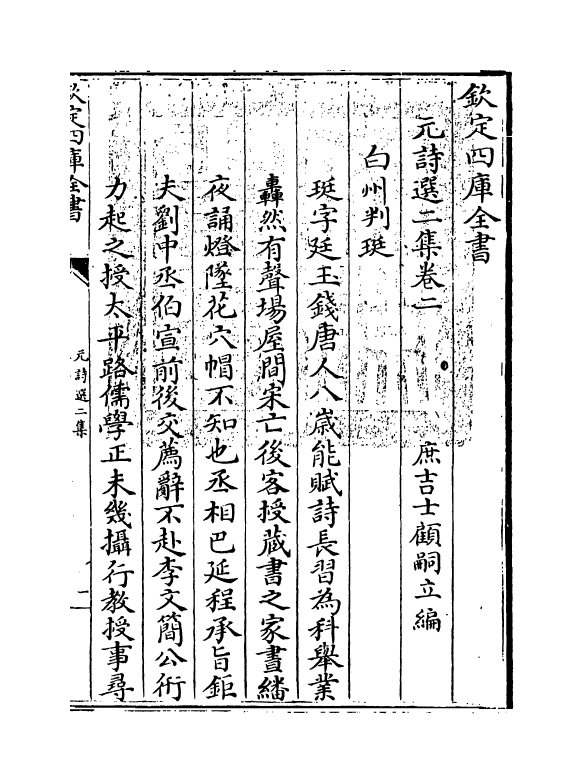 欽定四庫全書
元詩選二集卷二
庶吉士顧嗣立編
白州判珽
珽字廷玉錢唐人八歳能賦詩長習為科舉業
轟然有聲場屋間宋亡後客授藏書之家晝繙
夜誦燈墜花穴帽不知也丞相巴延程承旨鉅
夫劉中丞伯宣前後交薦辭不赴李文簡公衎
力起之授太平路儒學正未幾攝行教授事尋
欽定四庫全書
元詩選二集
一